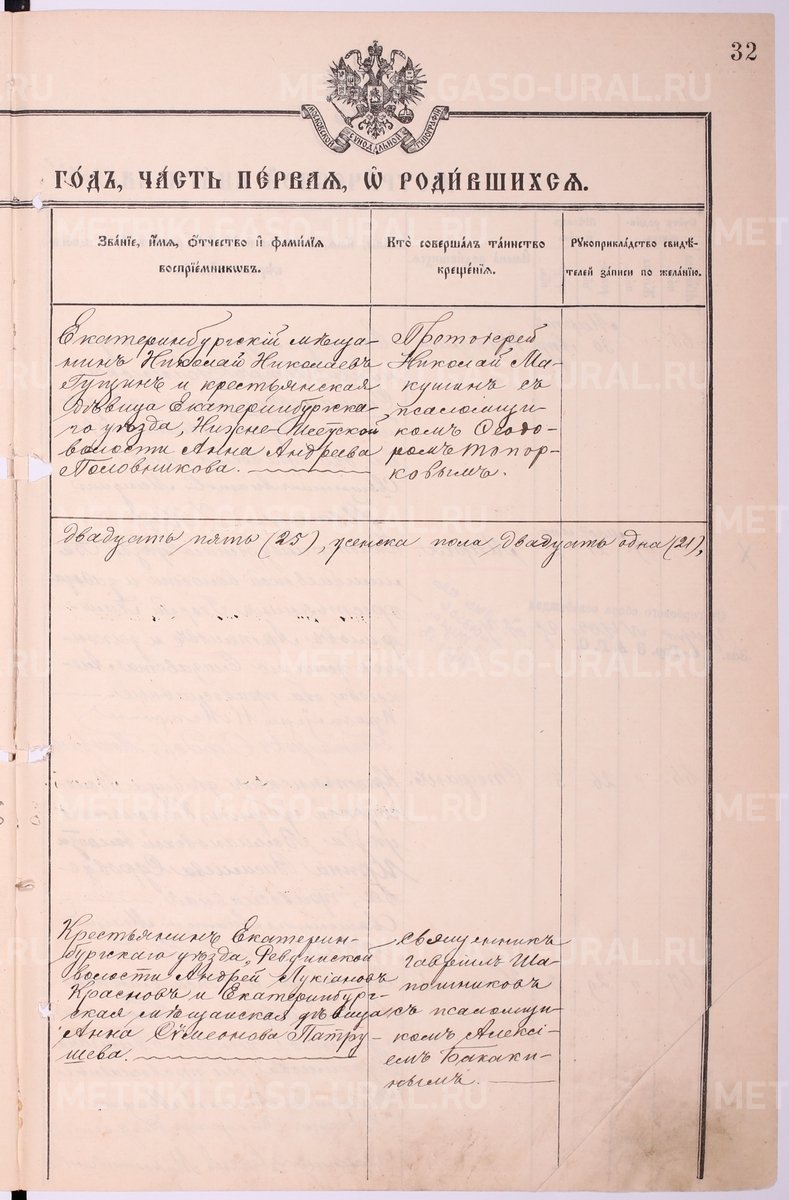 32
МОСКОВСКОЙ СѴНОДАЛЬНОЙ ТИПОГРАФІИ
ГО́ДЪ, ЧА́СТЬ ПЕ́РВАЯ, Ѡ҆ РОДИ́ВШИХСЯ.
Зва́нїе, и҆́мя, ѻ҆́тчество и҆ фами́лїя
воспрїе́мникѡвъ.
Кто̀ соверша́лъ та́инство
креще́нїя.
Рꙋкоприкла́дство свидѣ́-
телей за́писи по жела́нїю.
Екатеринбургскій мѣща-
нинъ Николай Николаевъ
Гущинъ и крестьянская
дѣвица Екатеринбургска-
го уѣзда, Нижне-Исетской
волости Анна Андреева
Половникова.
Протоіерей
Николай Ма-
кушинъ съ
псаломщи-
комъ Ѳеодо-
ромъ Топор-
ковымъ.
двадцать пять (25), женска пола двадцать одна (21),
Крестьянинъ Екатерин-
бургскаго уѣзда, Ревдинской
волости Андрей Лукіановъ
Красновъ и Екатеринбург-
ская мѣщанская дѣвица
Анна Сѵмеонова Патру-
шева.
Священникъ
Гавріилъ Ша-
пошниковъ
съ псаломщи-
комъ Алексі-
емъ Бакаки-
нымъ.
METRIKI.GASO-URAL.RU